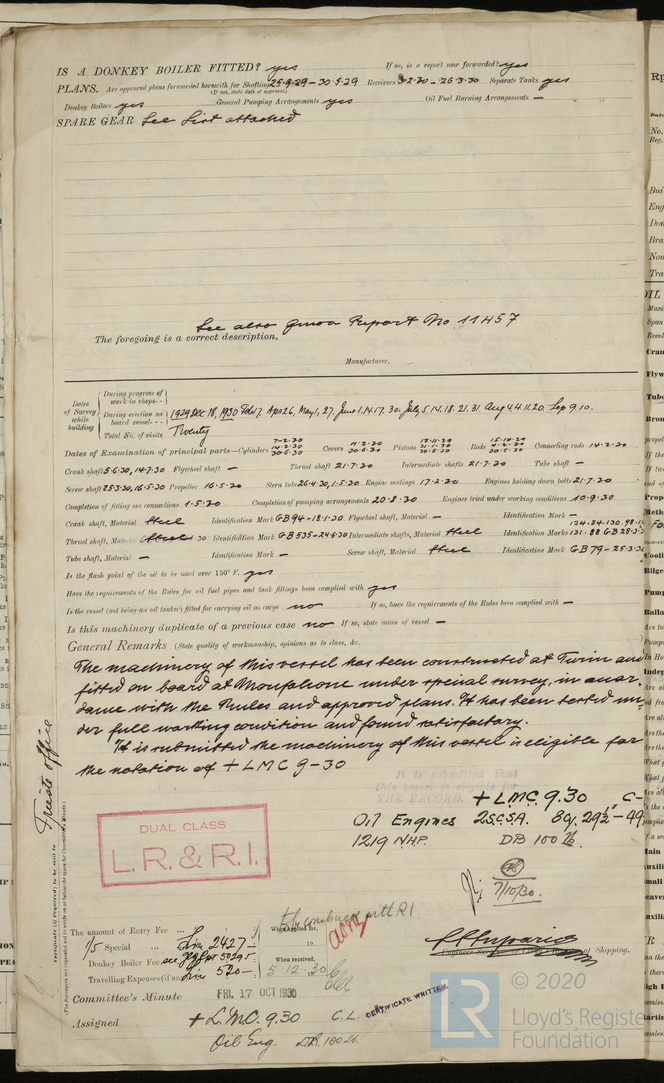 IS A DONKEY BOILER FITTED? yes If so, is a report now forwarded? yes
PLANS. Are approved plans forwarded herewith for Shafting 25.9.29 - 30.5.29 Receivers 3.2.30 - 26.3.30 Separate Tanks yes
(If not, state date of approval)
Donkey Boilers yes General Pumping Arrangements yes Oil Fuel Burning Arrangements —
SPARE GEAR See List attached
See also Genoa Report No 11457
The foregoing is a correct description,
Manufacturer.
Dates of Survey while building
During progress of work in shops - -
During erection on board vessel - - - 1929 Dec 18, 1930 Feb 17. Apr 26, May 1, 27, June 1.14.17. 30, July 5.14.18.21.31. Aug 4.4.11.20. Sep 9.10.
Total No. of visits Twenty
Dates of Examination of principal parts—Cylinders 7-2-30 14-2-30 30-6-30 Covers 11-2-30 30-6-30 Pistons Rods Connecting rods 14-2-30
Crank shaft 5·6·30, 14·7·30 Flywheel shaft — Thrust shaft 21.7.20 Intermediate shafts 21.7.20 Tube shaft —
Screw shaft 25.3.30, 16.5.30 Propeller 16.5.30 Stern tube 26.4.30, 1.5.30 Engine seatings 17.2.20 Engines holding down bolts 21.7.20
Completion of fitting sea connections 1.5.30 Completion of pumping arrangements 20.8.30 Engines tried under working conditions 10.9.30
Crank shaft, Material Steel Identification Mark GB 94 - 18·1·30 Flywheel shaft, Material — Identification Mark —
Thrust shaft, Material Steel Identification Mark GB 535 - 24·6·30 Intermediate shafts, Material Steel Identification Marks 124·84·130.98· 131·88 GB 28·3·
Tube shaft, Material — Identification Mark — Screw shaft, Material Steel Identification Mark GB 79 - 25·3·30
Is the flash point of the oil to be used over 150° F. yes
Have the requirements of the Rules for oil fuel pipes and tank fittings been complied with yes
Is the vessel (not being an oil tanker) fitted for carrying oil as cargo no If so, have the requirements of the Rules been complied with —
Is this machinery duplicate of a previous case no If so, state name of vessel —
General Remarks (State quality of workmanship, opinions as to class, &c.
The machinery of this vessel has been constructed at Turin and
fitted on board at Monfalcone under special survey, in accor-
dance with the Rules and approved plans. It has been tested un-
der full working condition and found satisfactory.
It is submitted the machinery of this vessel is eligible for
the notation of + LMC 9-30
It is submitted that
this vessel is eligible for
THE RECORD. + LMC. 9.30 C-
Oil Engines 2S.C.S.A. 8cy. 29½" - 49
1219 NHP. DB 100 lb.
7/10/30.
DUAL CLASS
L.R. & R.I.
Trieste office
The amount of Entry Fee ...
1/5 Special ... Lire 2427
Donkey Boiler Fee see
Travelling Expenses (if any) Lire 520
When applied for,
19
When received,
5 12 .30
of Shipping.
Committee's Minute FRI. 17 OCT 1930
CERTIFICATE WRITTEN
Assigned + L.M.C. 9.30 C.L.
Oil Eng. D.B. 100 lb.
© 2020
LR
Lloyd's Register
Foundation